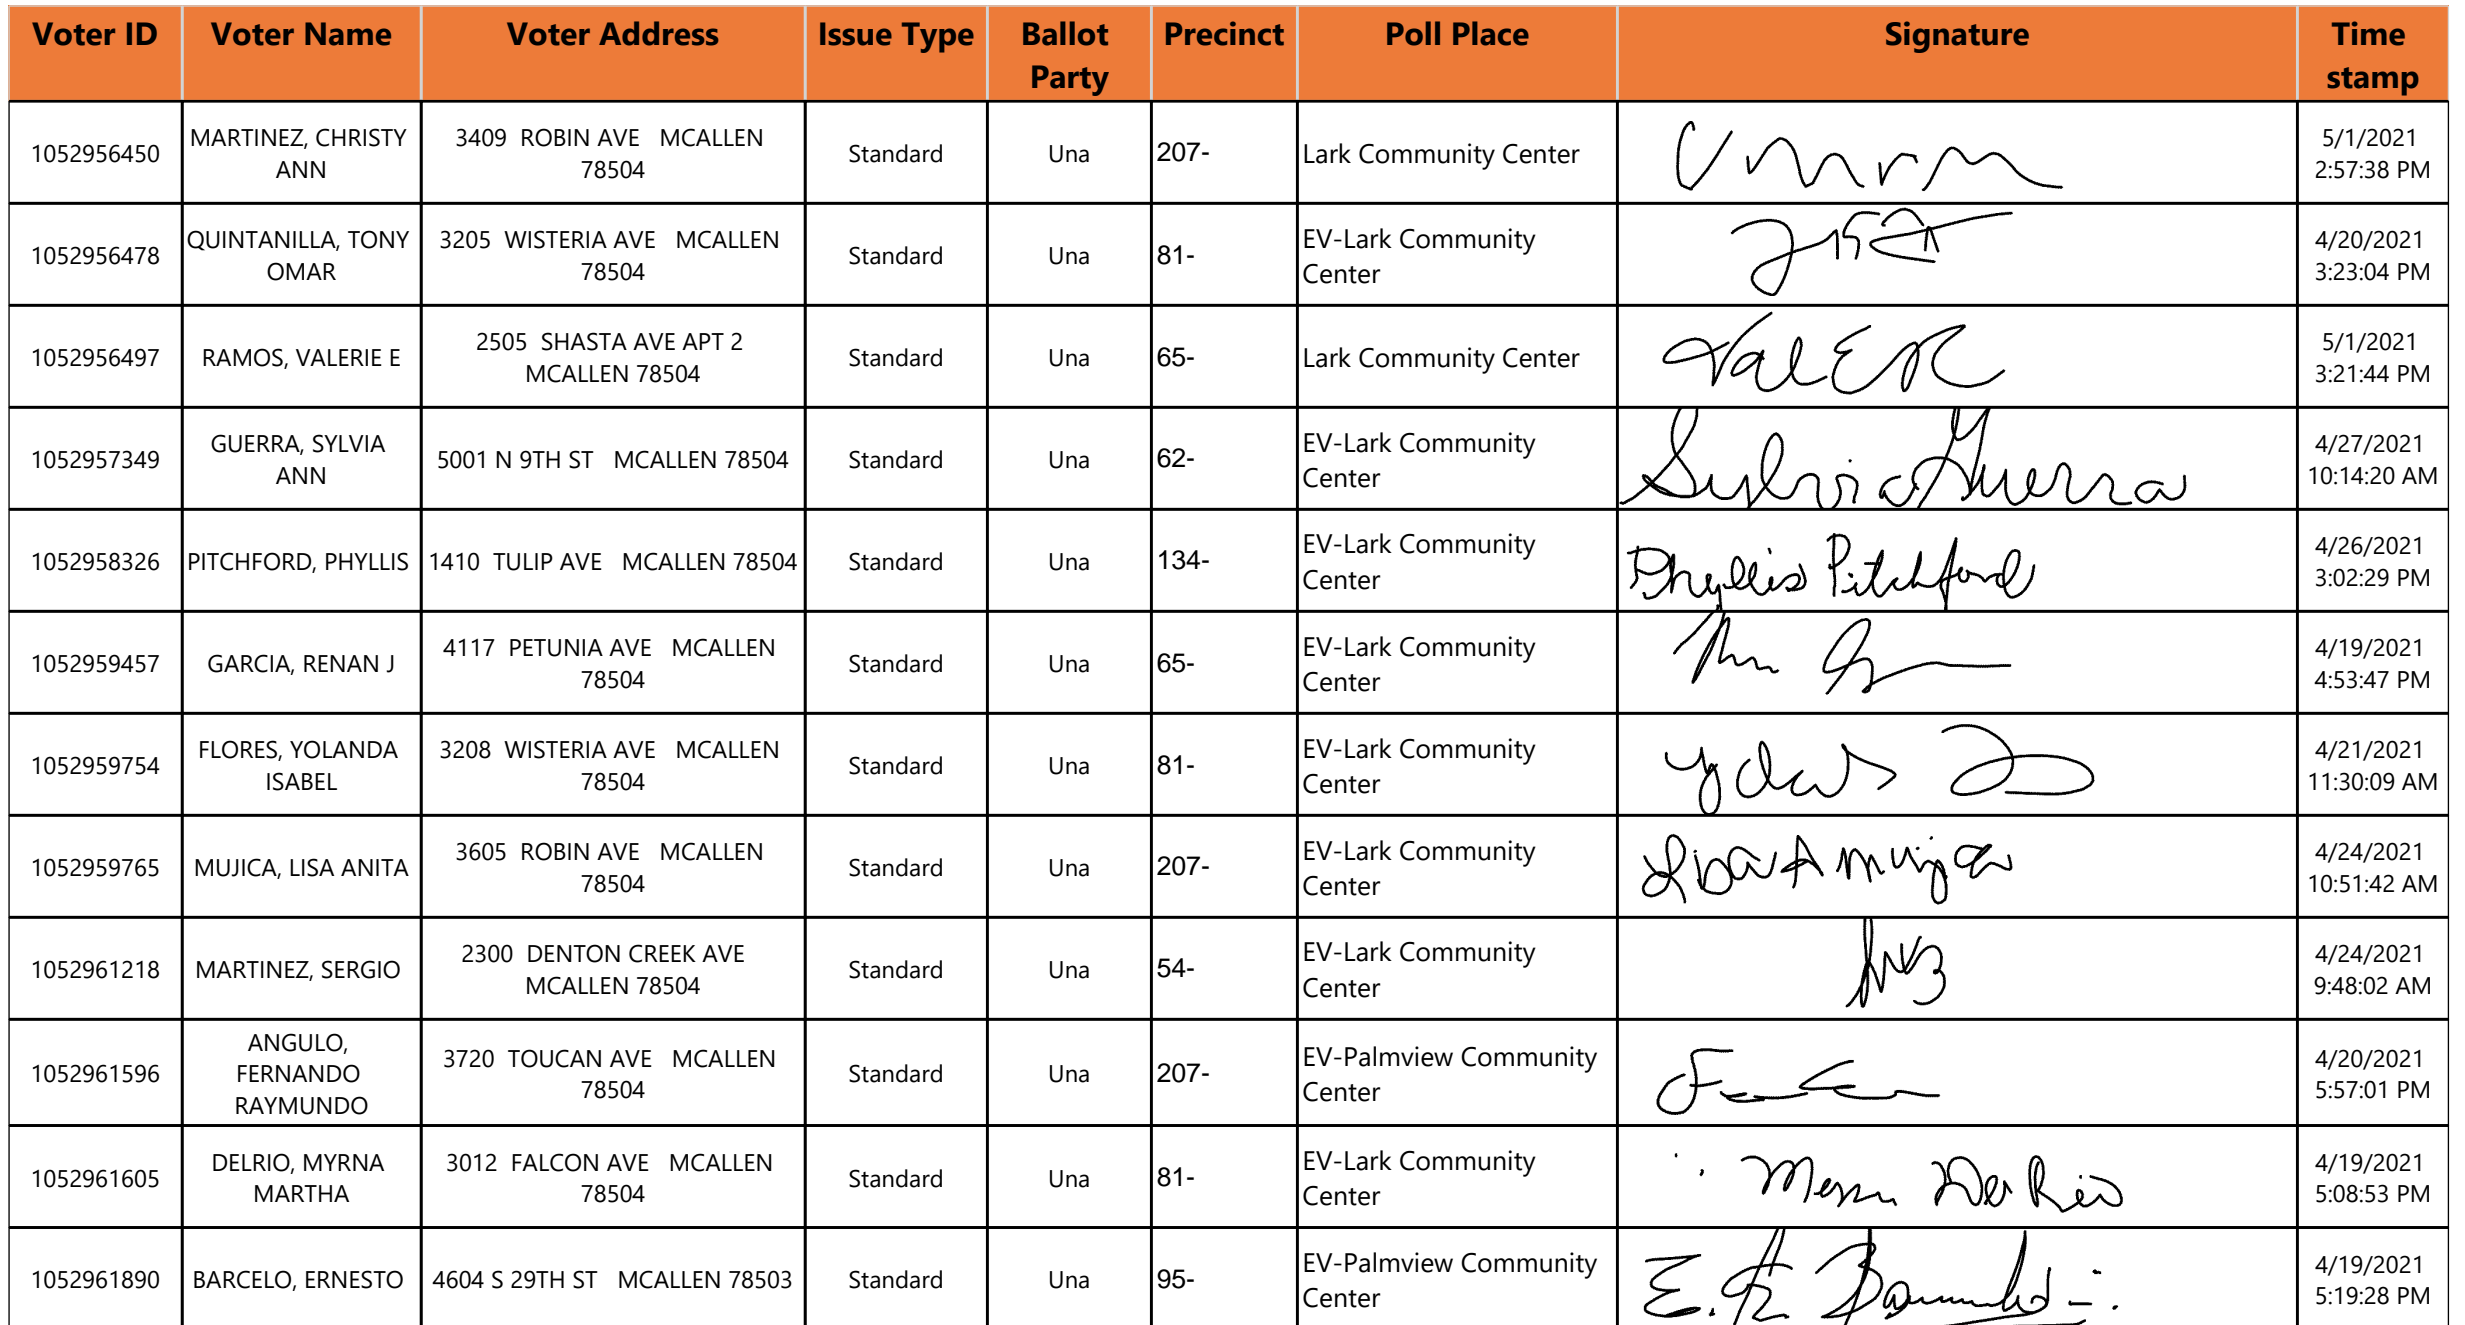 Voter ID Voter Name Voter Address Issue Type Ballot Party Precinct Poll Place Signature Time stamp
1052956450 MARTINEZ, CHRISTY ANN 3409 ROBIN AVE MCALLEN 78504 Standard Una 207- Lark Community Center 5/1/2021 2:57:38 PM
1052956478 QUINTANILLA, TONY OMAR 3205 WISTERIA AVE MCALLEN 78504 Standard Una 81- EV-Lark Community Center 4/20/2021 3:23:04 PM
1052956497 RAMOS, VALERIE E 2505 SHASTA AVE APT 2 MCALLEN 78504 Standard Una 65- Lark Community Center Val E R 5/1/2021 3:21:44 PM
1052957349 GUERRA, SYLVIA ANN 5001 N 9TH ST MCALLEN 78504 Standard Una 62- EV-Lark Community Center Sylvia Guerra 4/27/2021 10:14:20 AM
1052958326 PITCHFORD, PHYLLIS 1410 TULIP AVE MCALLEN 78504 Standard Una 134- EV-Lark Community Center Phyllis Pitchford 4/26/2021 3:02:29 PM
1052959457 GARCIA, RENAN J 4117 PETUNIA AVE MCALLEN 78504 Standard Una 65- EV-Lark Community Center 4/19/2021 4:53:47 PM
1052959754 FLORES, YOLANDA ISABEL 3208 WISTERIA AVE MCALLEN 78504 Standard Una 81- EV-Lark Community Center 4/21/2021 11:30:09 AM
1052959765 MUJICA, LISA ANITA 3605 ROBIN AVE MCALLEN 78504 Standard Una 207- EV-Lark Community Center Lisa A Mujica 4/24/2021 10:51:42 AM
1052961218 MARTINEZ, SERGIO 2300 DENTON CREEK AVE MCALLEN 78504 Standard Una 54- EV-Lark Community Center 4/24/2021 9:48:02 AM
1052961596 ANGULO, FERNANDO RAYMUNDO 3720 TOUCAN AVE MCALLEN 78504 Standard Una 207- EV-Palmview Community Center 4/20/2021 5:57:01 PM
1052961605 DELRIO, MYRNA MARTHA 3012 FALCON AVE MCALLEN 78504 Standard Una 81- EV-Lark Community Center Myrna Del Rio 4/19/2021 5:08:53 PM
1052961890 BARCELO, ERNESTO 4604 S 29TH ST MCALLEN 78503 Standard Una 95- EV-Palmview Community Center 4/19/2021 5:19:28 PM